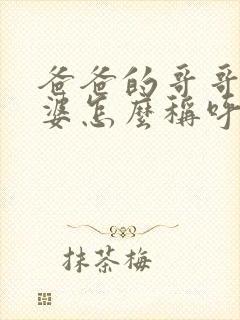 爸爸的哥哥
婆怎麼稱呼
抹茶梅